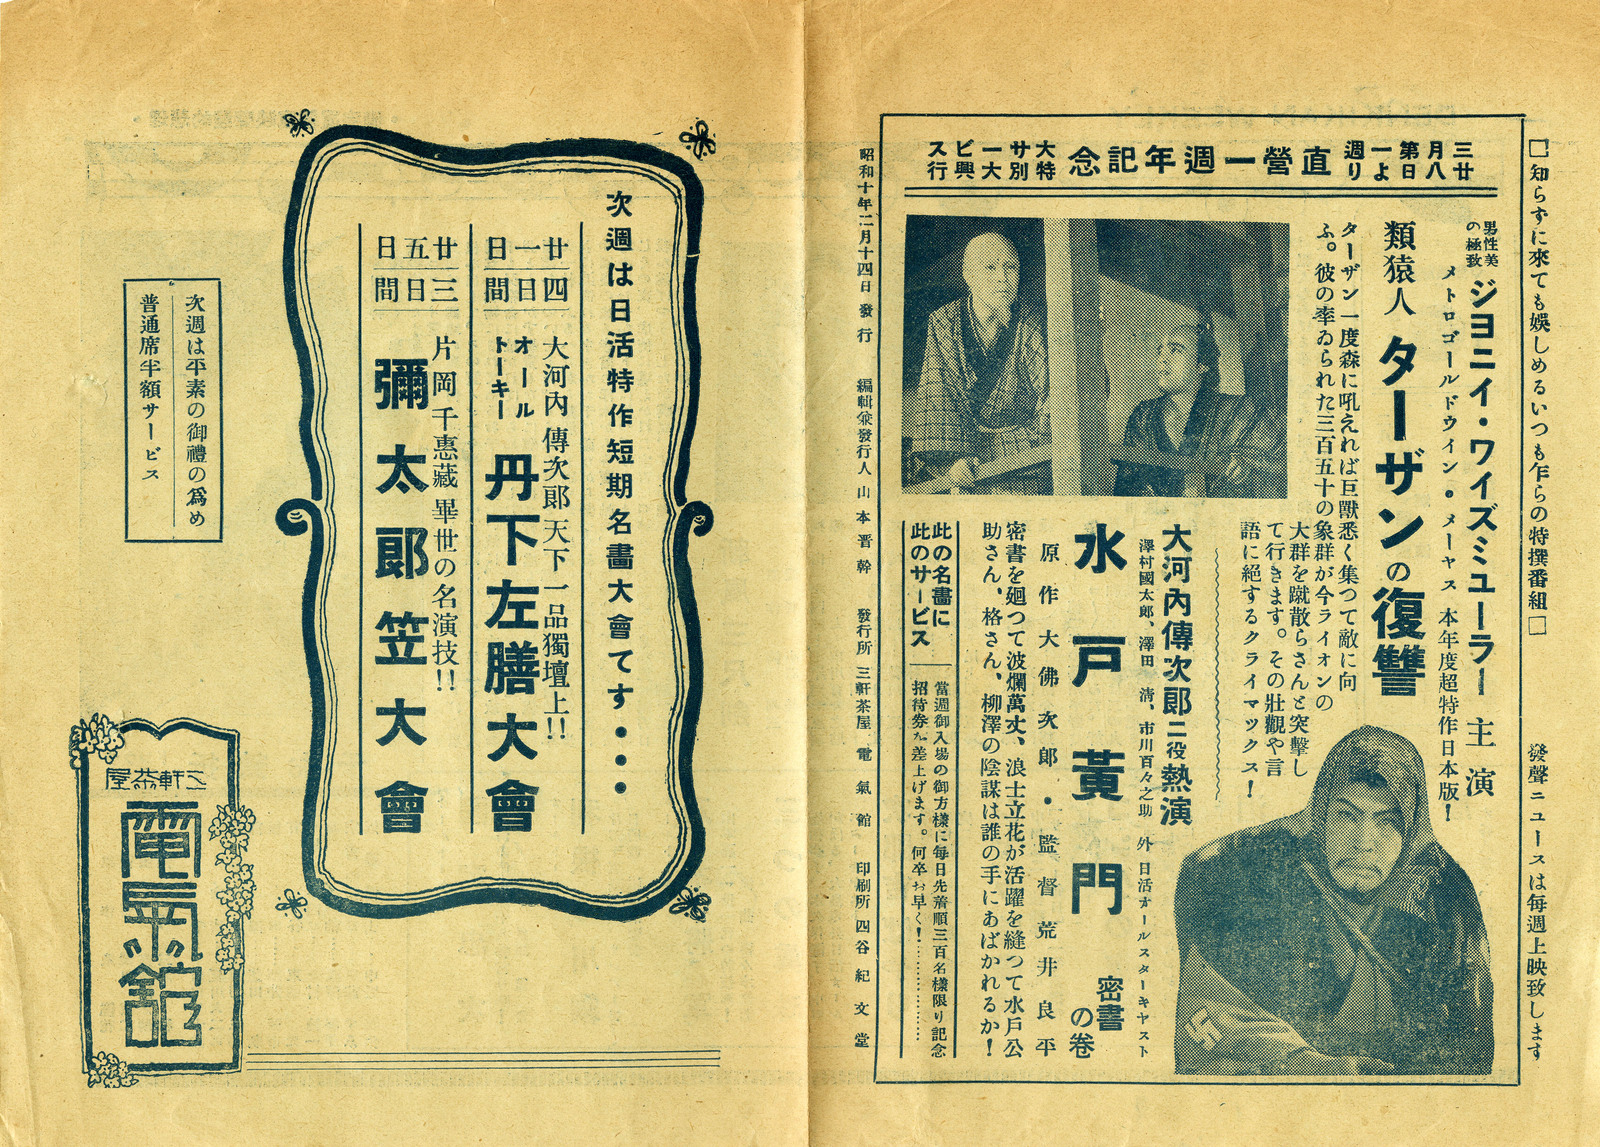 □知らずに來ても娯しめるいつも乍らの特撰番組□
發聲ニュースは毎週上映致します
三月第一週
廿八日より
直營一週年記念
大特別大興行
サービス
男性美の極致
ジヨニイ・ワイズミューラー 主演
メトロゴールドウイン・メーヤス 本年度超特作日本版!
類猿人 ターザンの復讐
ターザン一度森に吼えれば巨獸悉く集つて敵に向
ふ。彼の率ゐられた三百五十の象群が今ライオンの
大群を蹴散らさんと突撃し
て行きます。その壯觀や言
語に絕するクライマックス!
大河內傳次郎二役熱演
澤村國太郎、澤田 淸、市川百々之助 外 日活オールスターキヤスト
水戸黃門 密書の卷
原作 大佛次郎・監督 荒井良平
密書を廻つて波瀾萬丈、浪士立花が活躍を縫つて水戸公
助さん、格さん、柳澤の陰謀は誰の手にあばかれるか!
此の名畫に
此のサービス
當週御入場の御方樣に每日先着順三百名樣限り記念
招待券を差上げます。何卒お早く!…………
昭和十年二月十四日發行 編輯兼發行人 山本晋幹 發行所 三軒茶屋 電氣館 印刷所 四谷 紀文堂
次週は日活特作短期名畫大會てす・・・・
廿一日
四日間
大河內傳次郎 天下一品獨壇上!!
オール
トーキー
丹下左膳大會
廿五日
三日間
片岡千惠藏 畢世の名演技!!
彌太郎笠大會
次週は平素の御禮の爲め
普通席半額サービス
三軒茶屋
電氣館